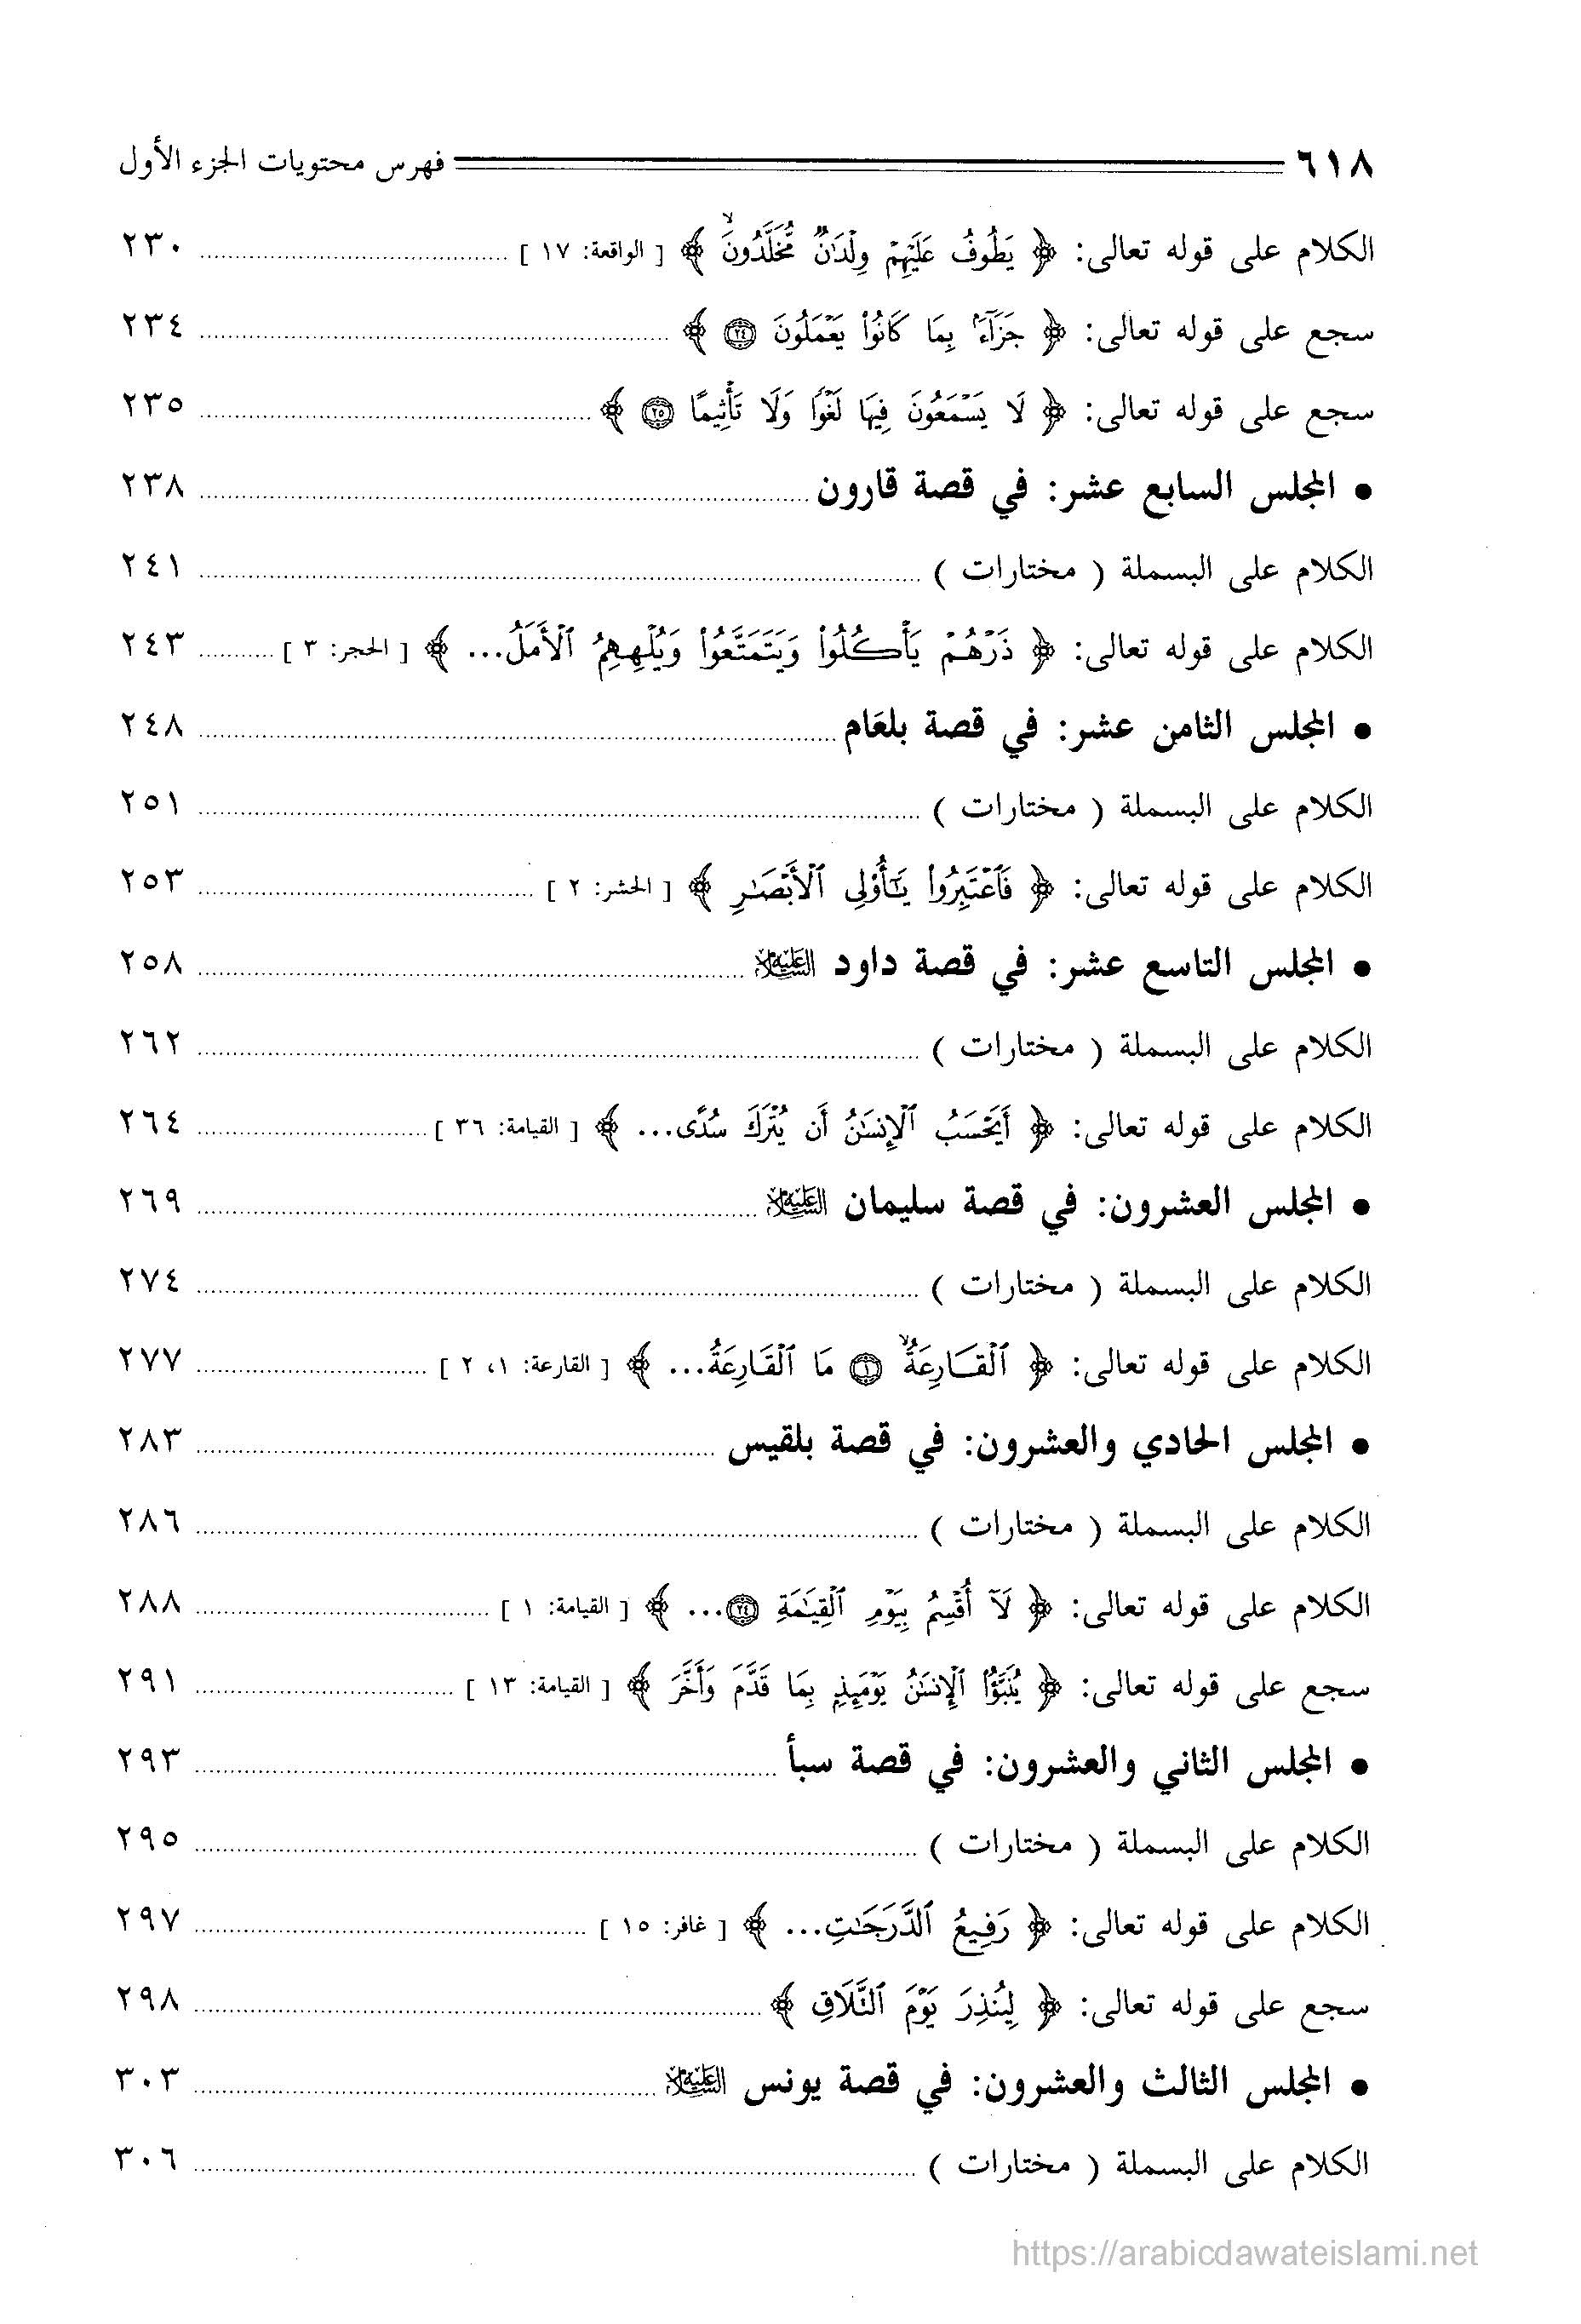 ٦١٨ فهرس محتويات الجزء الأول
الكلام على قوله تعالى: ﴿ يَطُوفُ عَلَيْهِمْ وِلْدَٰنٌ مُّخَلَّدُونَۙ ﴾ [ الواقعة: ١٧ ] ........ ٢٣٠
سجع على قوله تعالى: ﴿ جَزَآءًۢ بِمَا كَانُوا۟ يَعْمَلُونَ ۝٢٤ ﴾ ........ ٢٣٤
سجع على قوله تعالى: ﴿ لَا يَسْمَعُونَ فِيهَا لَغْوًا وَلَا تَأْثِيمًا ۝٢٥ ﴾ ........ ٢٣٥
• المجلس السابع عشر: في قصة قارون ........ ٢٣٨
الكلام على البسملة ( مختارات ) ........ ٢٤١
الكلام على قوله تعالى: ﴿ ذَرْهُمْ يَأْكُلُوا۟ وَيَتَمَتَّعُوا۟ وَيُلْهِهِمُ ٱلْأَمَلُ... ﴾ [ الحجر: ٣ ] ........ ٢٤٣
• المجلس الثامن عشر: في قصة بلعَام ........ ٢٤٨
الكلام على البسملة ( مختارات ) ........ ٢٥١
الكلام على قوله تعالى: ﴿ فَٱعْتَبِرُوا۟ يَٰٓأُو۟لِى ٱلْأَبْصَٰرِ ﴾ [ الحشر: ٢ ] ........ ٢٥٣
• المجلس التاسع عشر: في قصة داود عليه السلام ........ ٢٥٨
الكلام على البسملة ( مختارات ) ........ ٢٦٢
الكلام على قوله تعالى: ﴿ أَيَحْسَبُ ٱلْإِنسَٰنُ أَن يُتْرَكَ سُدًى... ﴾ [ القيامة: ٣٦ ] ........ ٢٦٤
• المجلس العشرون: في قصة سليمان عليه السلام ........ ٢٦٩
الكلام على البسملة ( مختارات ) ........ ٢٧٤
الكلام على قوله تعالى: ﴿ ٱلْقَارِعَةُۙ ۝١ مَا ٱلْقَارِعَةُ... ﴾ [ القارعة: ١، ٢ ] ........ ٢٧٧
• المجلس الحادي والعشرون: في قصة بلقيس ........ ٢٨٣
الكلام على البسملة ( مختارات ) ........ ٢٨٦
الكلام على قوله تعالى: ﴿ لَآ أُقْسِمُ بِيَوْمِ ٱلْقِيَٰمَةِ ۝٢٤... ﴾ [ القيامة: ١ ] ........ ٢٨٨
سجع على قوله تعالى: ﴿ يُنَبَّؤُا۟ ٱلْإِنسَٰنُ يَوْمَئِذٍۭ بِمَا قَدَّمَ وَأَخَّرَ ﴾ [ القيامة: ١٣ ] ........ ٢٩١
• المجلس الثاني والعشرون: في قصة سبأ ........ ٢٩٣
الكلام على البسملة ( مختارات ) ........ ٢٩٥
الكلام على قوله تعالى: ﴿ رَفِيعُ ٱلدَّرَجَٰتِ... ﴾ [ غافر: ١٥ ] ........ ٢٩٧
سجع على قوله تعالى: ﴿ لِيُنذِرَ يَوْمَ ٱلتَّلَاقِ ﴾ ........ ٢٩٨
• المجلس الثالث والعشرون: في قصة يونس عليه السلام ........ ٣٠٣
الكلام على البسملة ( مختارات ) ........ ٣٠٦
https://arabicdawateislami.net